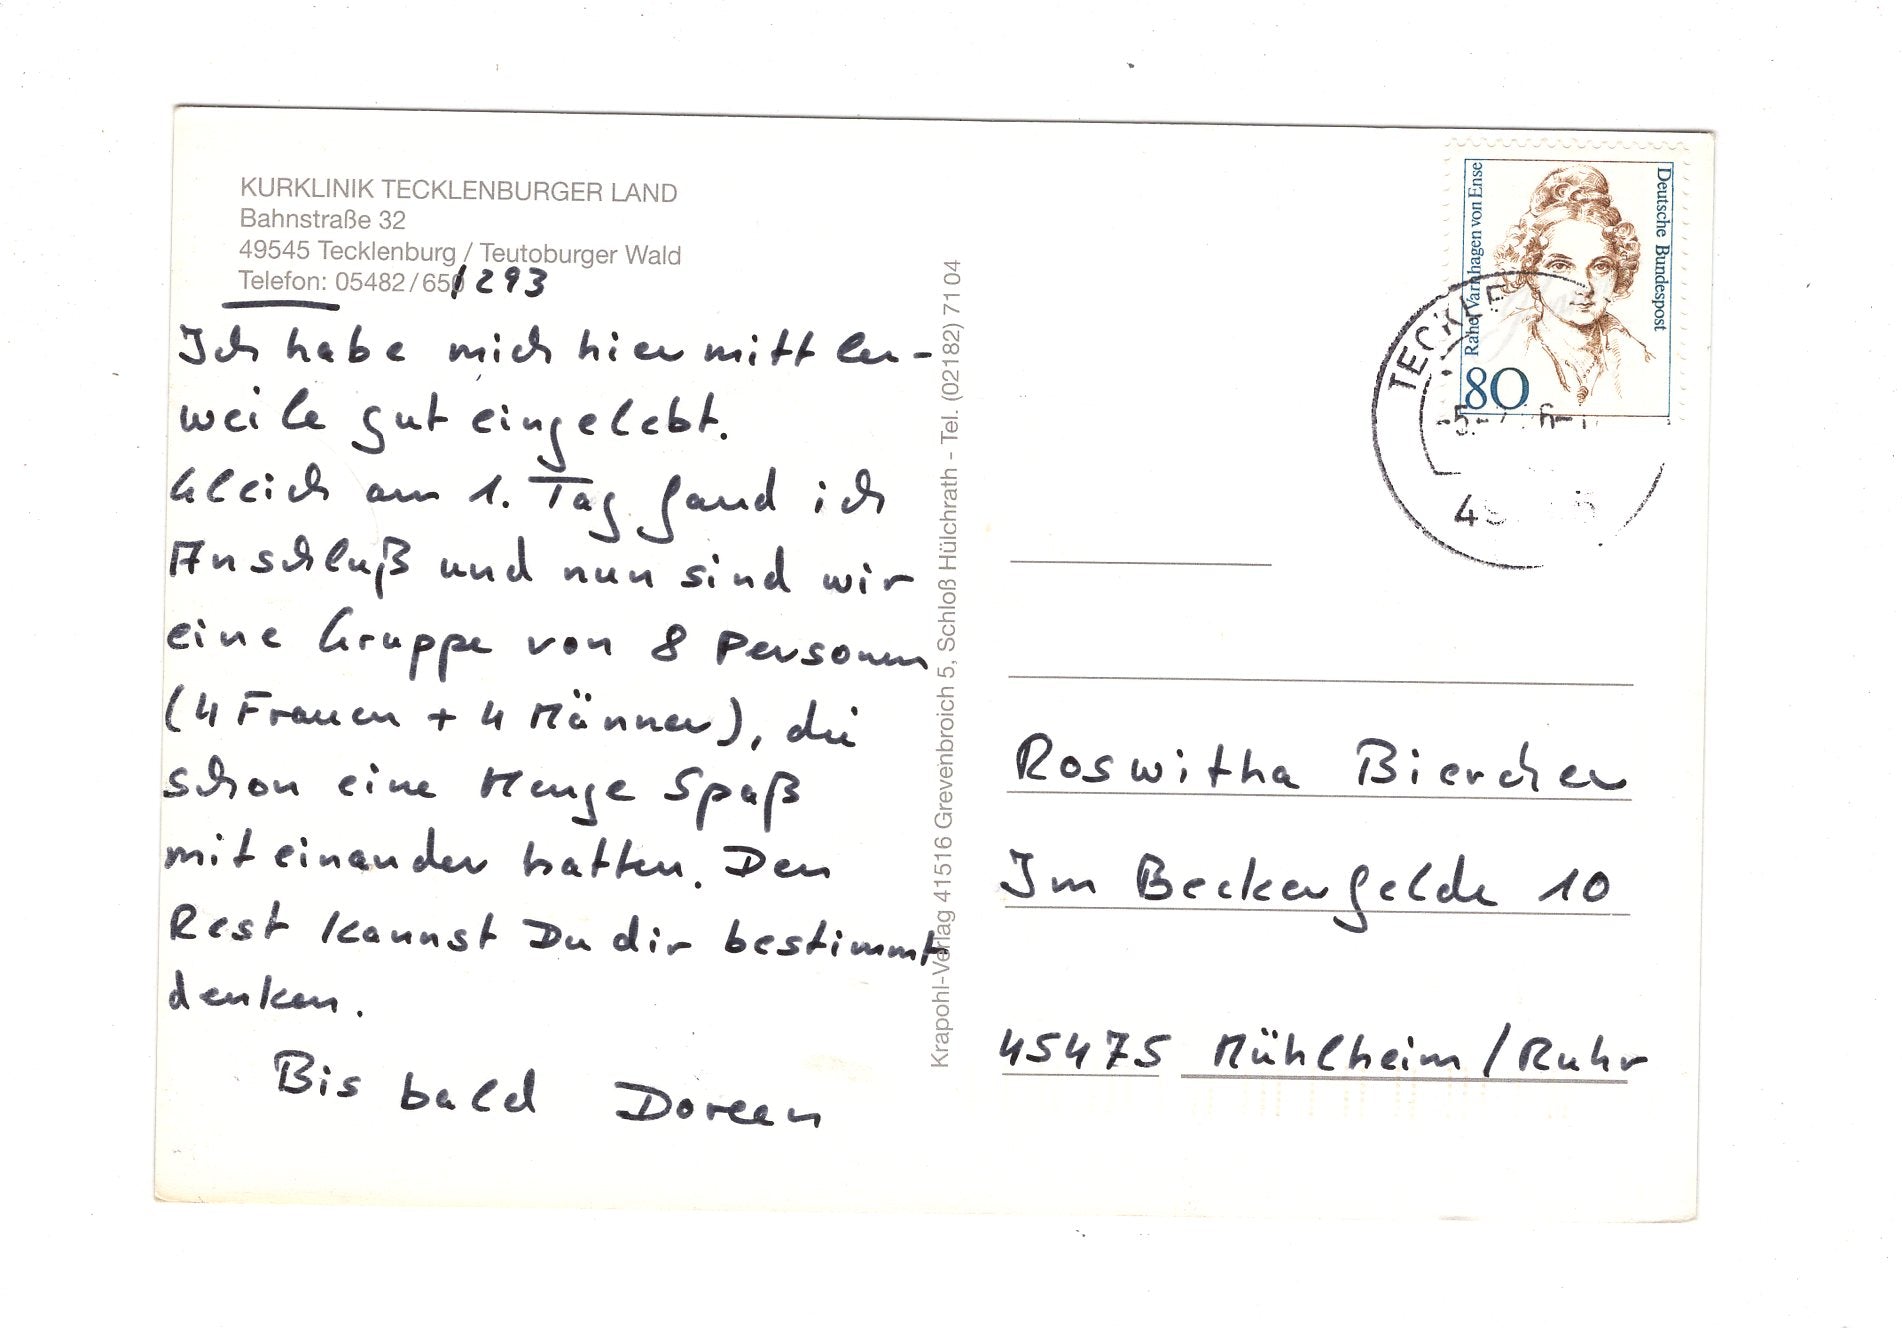 KURKLINIK TECKLENBURGER LAND
Bahnstraße 32
49545 Tecklenburg / Teutoburger Wald
Telefon: 05482/65 1293
Ich habe mich hier mittler-
weile gut eingelebt.
Gleich am 1. Tag fand ich
Anschluß und nun sind wir
eine Gruppe von 8 Personen
(4 Frauen + 4 Männer), die
schon eine Menge Spaß
miteinander hatten. Den
Rest kannst Du dir bestimmt
denken.
Bis bald Doreen
Krapohl-Verlag 41516 Grevenbroich 5, Schloß Hülchrath - Tel. (02182) 71 04
Rahel Varnhagen von Ense
Deutsche Bundespost
80
TECKLE
Roswitha Biercher
Im Beckerfelde 10
45475 Mühlheim/Ruhr